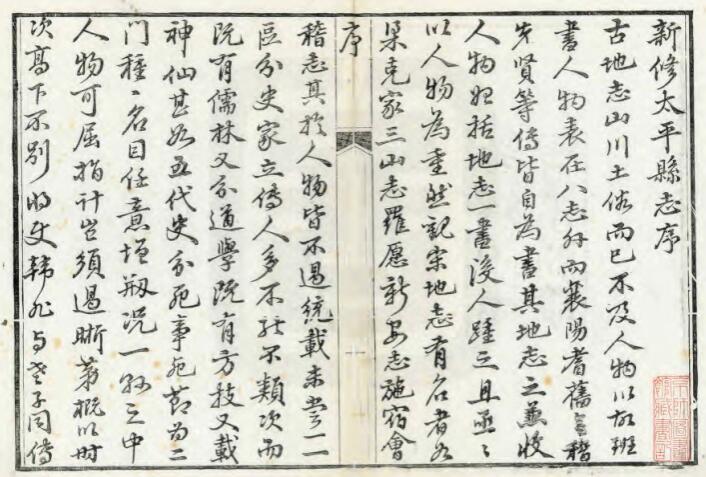 新修太平縣志序
古地志山川土俗而已不及人物以故班
書人物表在八志外而襄陽耆舊會稽
先賢等傳皆自為書其地志之兼收
人物始括地志一書後人踵之且亟〻
以人物為重然觀宋地志有名者如
梁克家三山志羅愿新安志施宿會
序
稽志其於人物皆不過統載未嘗一一
區分史家立傳人多不能不類次而
既有儒林又分道學既有方技又載
神仙甚如五代史分死事死節為二
門種〻名目任意增剏況一縣之中
人物可屈指計豈須過晰第概以時
次高下不別時史韓非与老子同傳